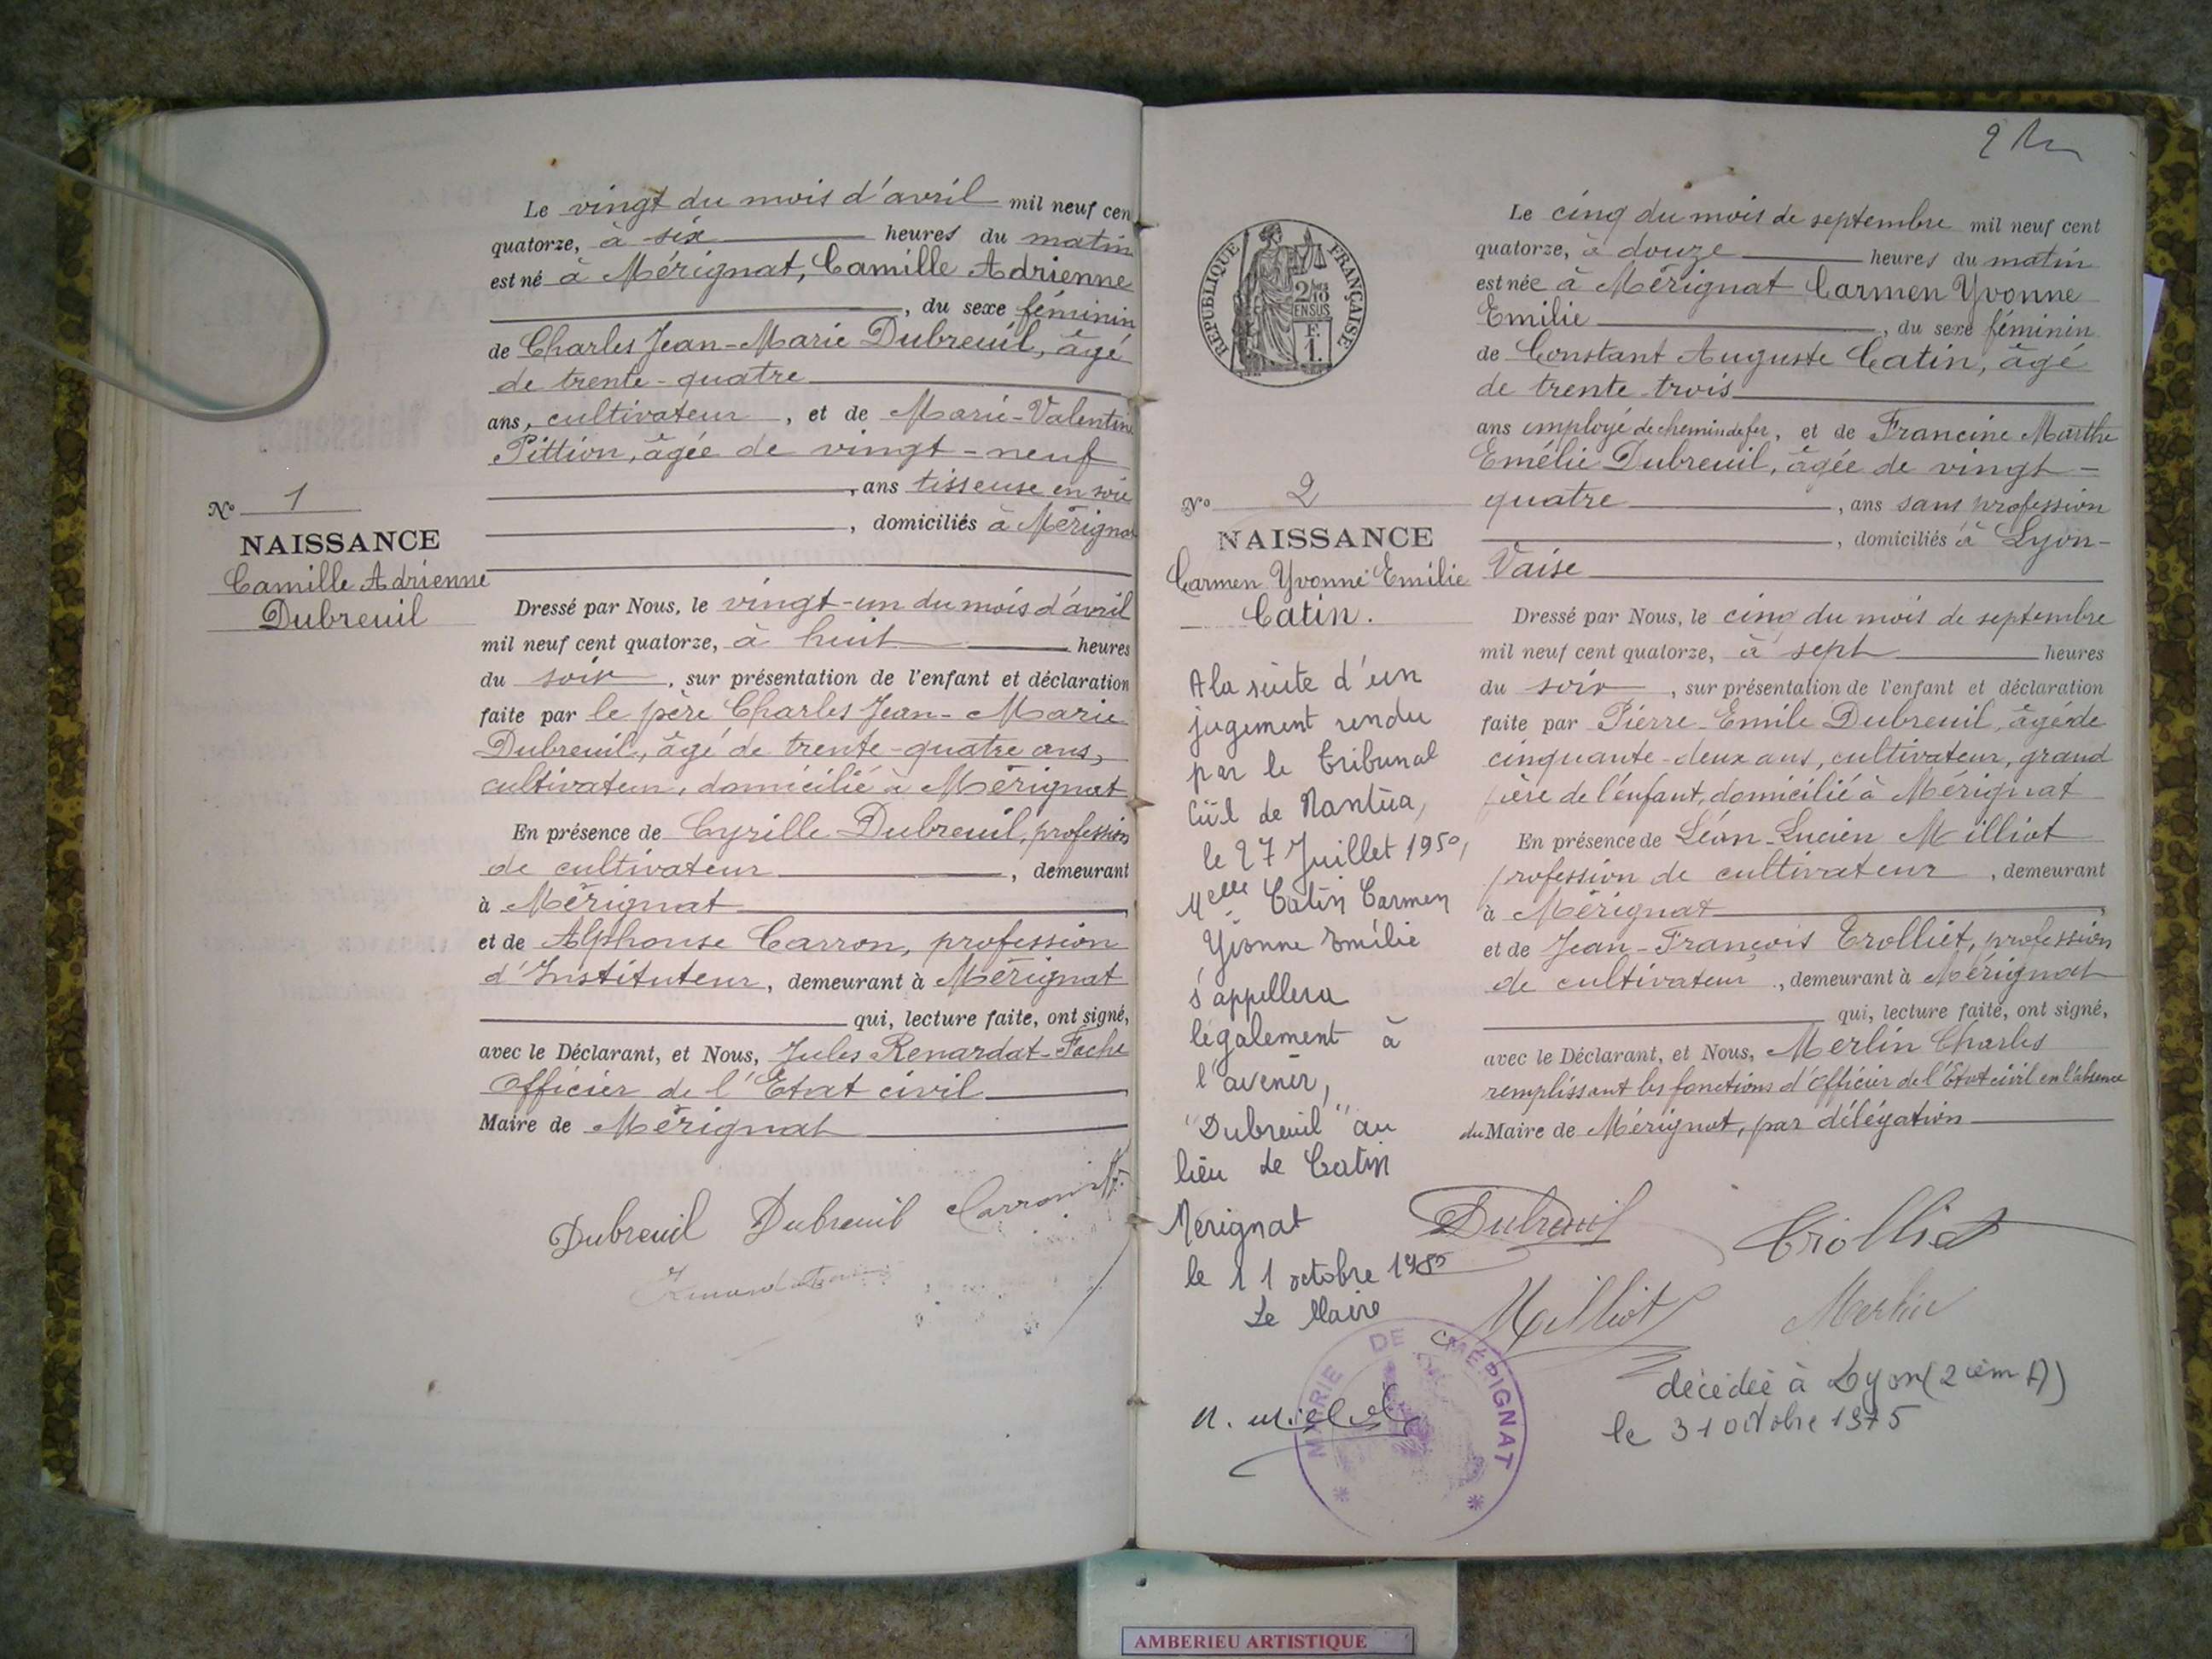 Le vingt du mois d'avril mil neuf cen
quatorze, à six heures du matin
est né à Mérignat, Camille Adrienne
, du sexe féminin
de Charles Jean-Marie Dubreuil, âgé
de trente-quatre
ans, cultivateur, et de Marie-Valentine
Pittion, âgée de vingt-neuf
, ans tisseuse en soie
, domiciliés à Mérignat
Nº 1
NAISSANCE
Camille Adrienne
Dubreuil
Dressé par Nous, le vingt-un du mois d'avril
mil neuf cent quatorze, à huit heures
du soir, sur présentation de l'enfant et déclaration
faite par le père Charles Jean-Marie
Dubreuil, âgé de trente-quatre ans,
cultivateur, domicilié à Mérignat
En présence de Cyrille Dubreuil, profession
de cultivateur, demeurant
à Mérignat
et de Alphonse Carron, profession
d'Instituteur, demeurant à Mérignat
qui, lecture faite, ont signé,
avec le Déclarant, et Nous, Jules Renardat-Fache
Officier de l'Etat civil
Maire de Mérignat
Dubreuil Dubreuil Carron
2
RÉPUBLIQUE FRANÇAISE
2/10
EN SUS
F.
1.
Le cinq du mois de septembre mil neuf cent
quatorze, à douze heures du matin
est née à Mérignat Carmen Yvonne
Emilie, du sexe féminin
de Constant Auguste Catin, âgé
de trente-trois
ans employé de chemin de fer, et de Francine Marthe
Emélie Dubreuil, âgée de vingt-
quatre, ans sans profession
, domiciliés à Lyon-
Vaise
Nº 2
NAISSANCE
Carmen Yvonne Emilie
Catin.
Dressé par Nous, le cinq du mois de septembre
mil neuf cent quatorze, à sept heures
du soir, sur présentation de l'enfant et déclaration
faite par Pierre-Emile Dubreuil, âgé de
cinquante-deux ans, cultivateur, grand
père de l'enfant, domicilié à Mérignat
En présence de Léon-Lucien Milliot
profession de cultivateur, demeurant
à Mérignat
et de Jean-François Trolliet, profession
de cultivateur, demeurant à Mérignat
qui, lecture faite, ont signé,
avec le Déclarant, et Nous, Merlin Charles
remplissant les fonctions d'Officier de l'Etat civil en l'absence
du Maire de Mérignat, par délégation
A la suite d'un
jugement rendu
par le Tribunal
Civil de Nantua,
le 27 Juillet 1950,
Melle Catin Carmen
Yvonne Emilie
s'appellera
légalement à
l'avenir,
"Dubreuil" au
lieu de Catin
Mérignat
le 11 octobre
Le Maire
Dubreuil Trolliet
Milliot Merlin
MAIRIE DE MÉRIGNAT
décédée à Lyon (2ièm A)
le 31 octobre 1975
AMBERIEU ARTISTIQUE